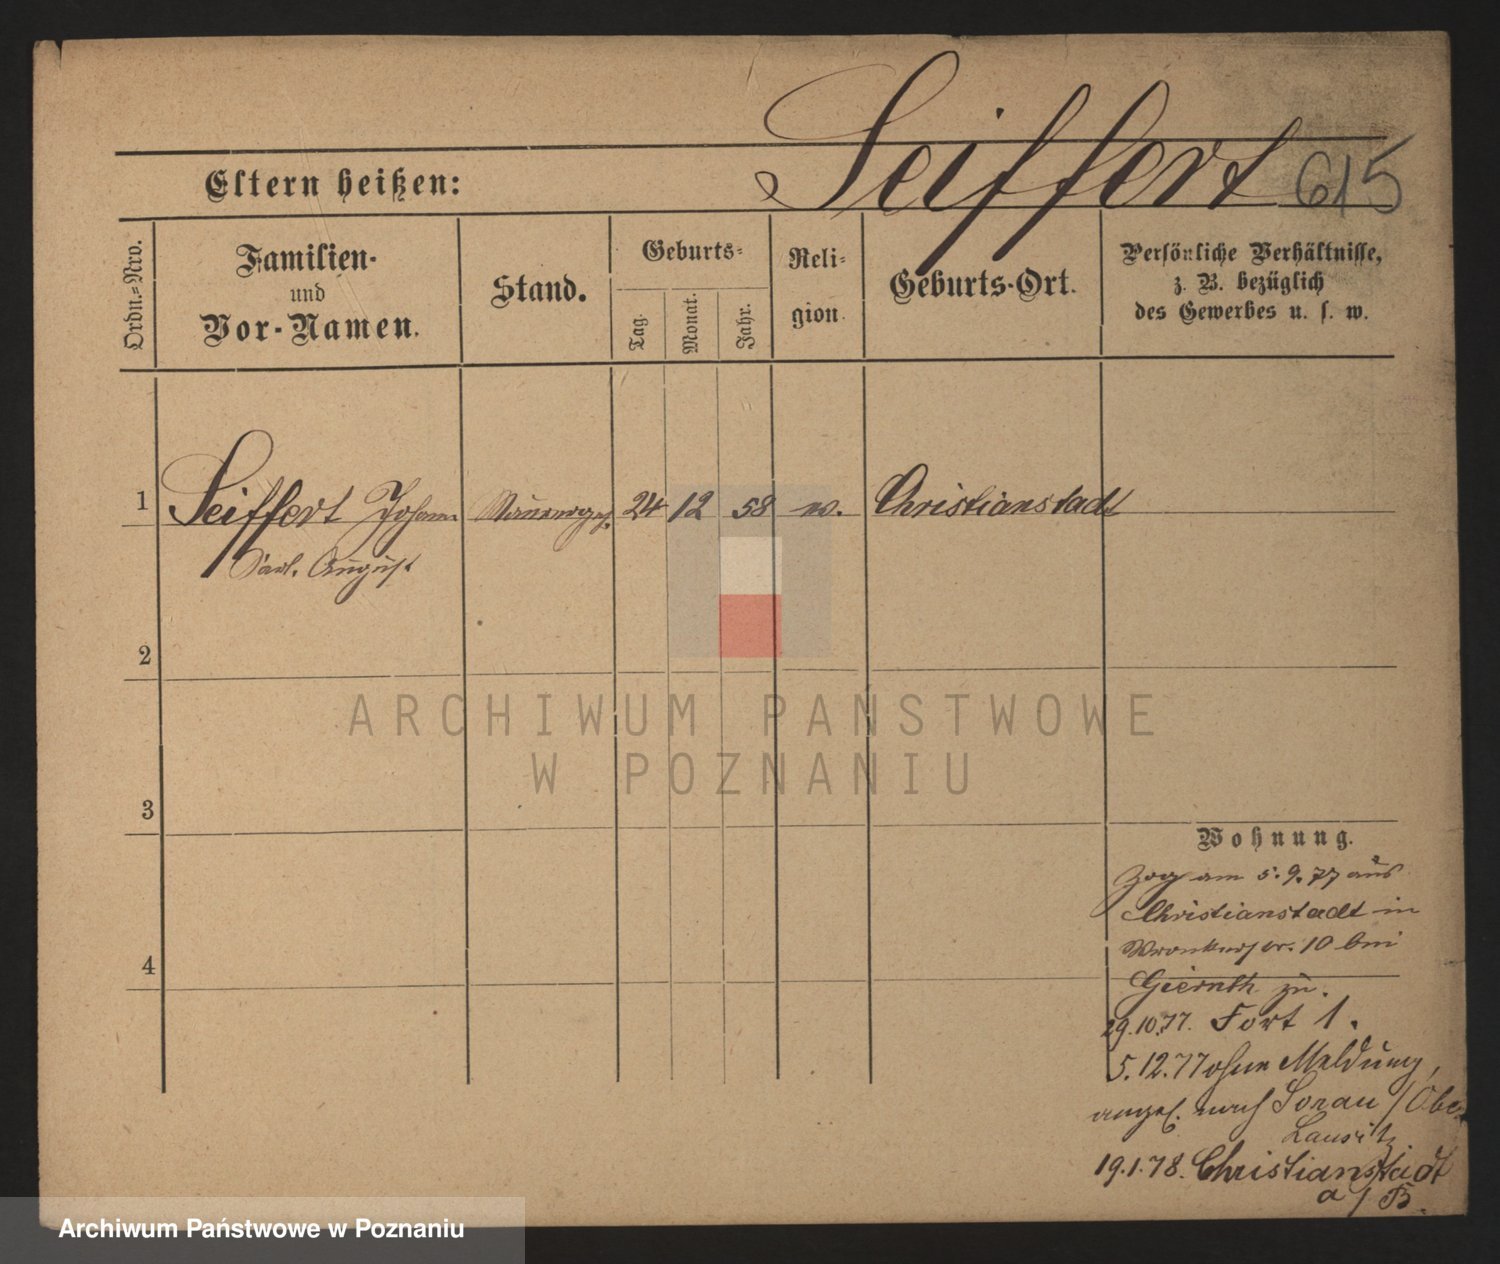 Seiffert 615
Eltern heißen:
Ordn.-Nro.
Familien-
und
Vor-Namen.
Stand.
Geburts-
Tag.
Monat.
Jahr.
Reli-
gion.
Geburts-Ort.
Persönliche Verhältnisse,
z. B. bezüglich
des Gewerbes u. s. w.
1 Seiffert Johann Maurerges. 24 12 58 ev. Christianstadt
Carl. August
2
3
4
Wohnung.
Zog am 5.9.77 aus
Christianstadt in
Wronkerstr. 10 bei
zu.
29.10.77. Fort 1.
5.12.77 ohne Meldung,
angebl. nach Sorau / Ober
Lausitz
19.1.78. Christianstadt
a / B.
ARCHIWUM PAŃSTWOWE
W POZNANIU
Archiwum Państwowe w Poznaniu